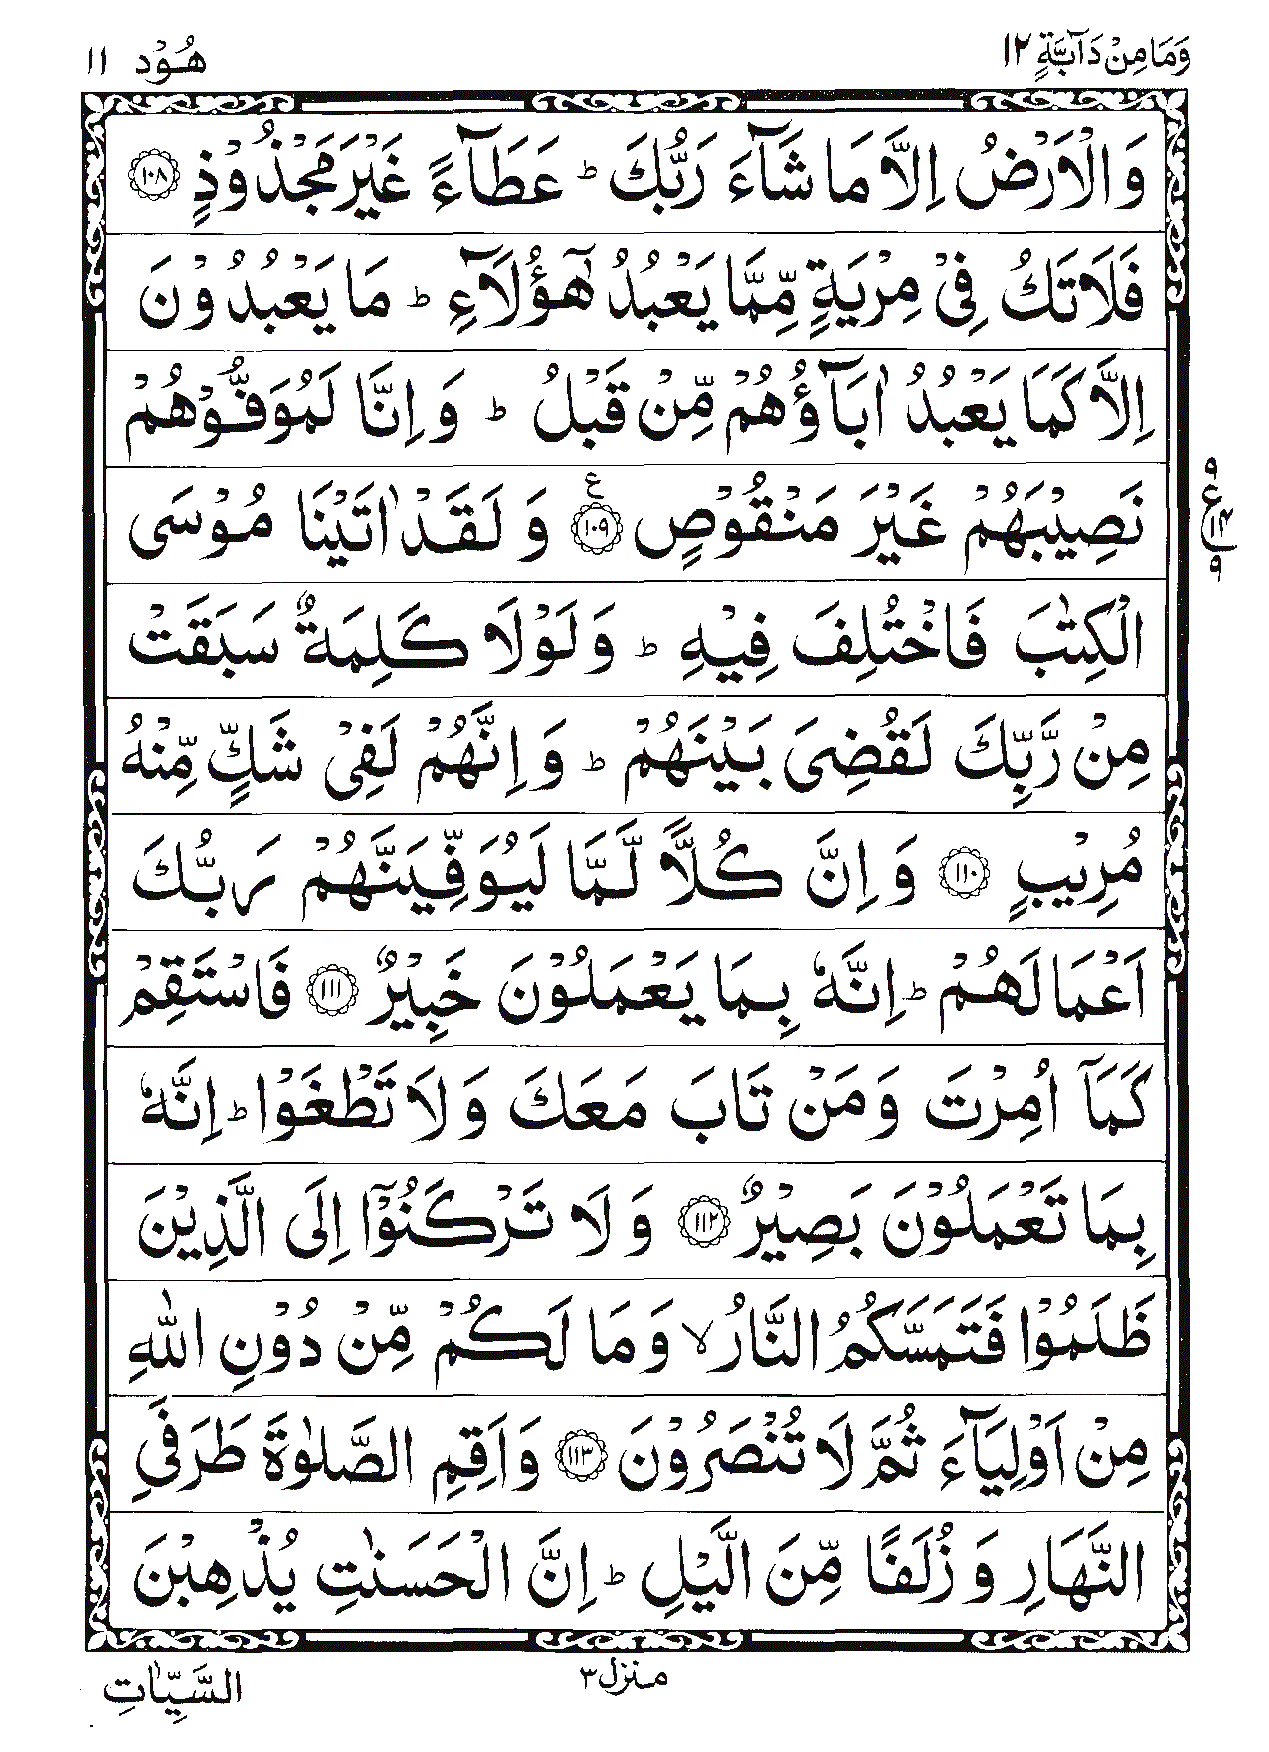 وَمَا مِنْ دَآبَّةٍ ١٢
هُوْد ١١
وَالْاَرْضُ اِلَّا مَا شَآءَ رَبُّكَ ؕ عَطَآءً غَيْرَ مَجْذُوْذٍ ﴿١٠٨﴾
فَلَا تَكُ فِيْ مِرْيَةٍ مِّمَّا يَعْبُدُ هٰٓؤُلَآءِ ؕ مَا يَعْبُدُوْنَ
اِلَّا كَمَا يَعْبُدُ اٰبَآؤُهُمْ مِّنْ قَبْلُ ؕ وَ اِنَّا لَمُوَفُّوْهُمْ
نَصِيْبَهُمْ غَيْرَ مَنْقُوْصٍ ﴿١٠٩﴾ ع وَ لَقَدْ اٰتَيْنَا مُوْسَى
٩ ع ١٤ ٩
الْكِتٰبَ فَاخْتُلِفَ فِيْهِ ؕ وَ لَوْلَا كَلِمَةٌ سَبَقَتْ
مِنْ رَّبِّكَ لَقُضِيَ بَيْنَهُمْ ؕ وَ اِنَّهُمْ لَفِيْ شَكٍّ مِّنْهُ
مُرِيْبٍ ﴿١١٠﴾ وَ اِنَّ كُلًّا لَّمَّا لَيُوَفِّيَنَّهُمْ رَبُّكَ
اَعْمَالَهُمْ ؕ اِنَّهٗ بِمَا يَعْمَلُوْنَ خَبِيْرٌ ﴿١١١﴾ فَاسْتَقِمْ
كَمَآ اُمِرْتَ وَ مَنْ تَابَ مَعَكَ وَ لَا تَطْغَوْا ؕ اِنَّهٗ
بِمَا تَعْمَلُوْنَ بَصِيْرٌ ﴿١١٢﴾ وَ لَا تَرْكَنُوْٓا اِلَى الَّذِيْنَ
ظَلَمُوْا فَتَمَسَّكُمُ النَّارُ ۙ وَ مَا لَكُمْ مِّنْ دُوْنِ اللّٰهِ
مِنْ اَوْلِيَآءَ ثُمَّ لَا تُنْصَرُوْنَ ﴿١١٣﴾ وَ اَقِمِ الصَّلٰوةَ طَرَفَيِ
النَّهَارِ وَ زُلَفًا مِّنَ الَّيْلِ ؕ اِنَّ الْحَسَنٰتِ يُذْهِبْنَ
منزل ٣
السَّيِّاٰتِ